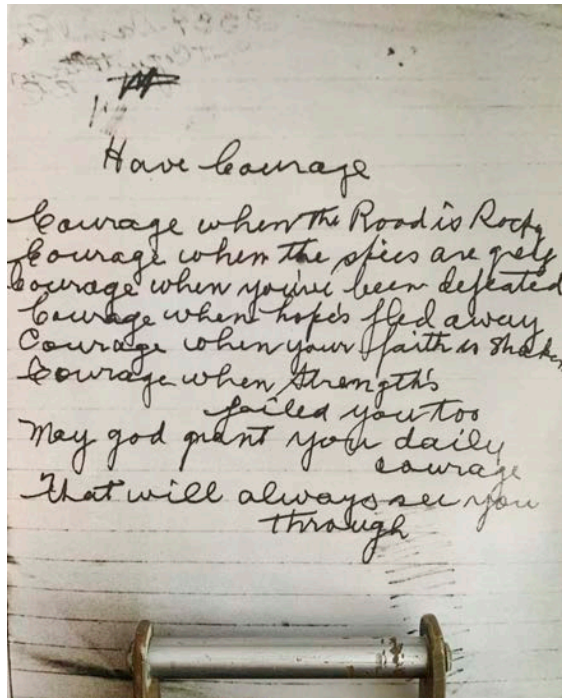 Have Courage
Courage when the Road is Rocky
Courage when the skies are grey
Courage when you've been defeated
Courage when hope's fled away
Courage when your faith is shaken
Courage when Strength's
failed you too
May god grant you daily
courage
That will always see you
through